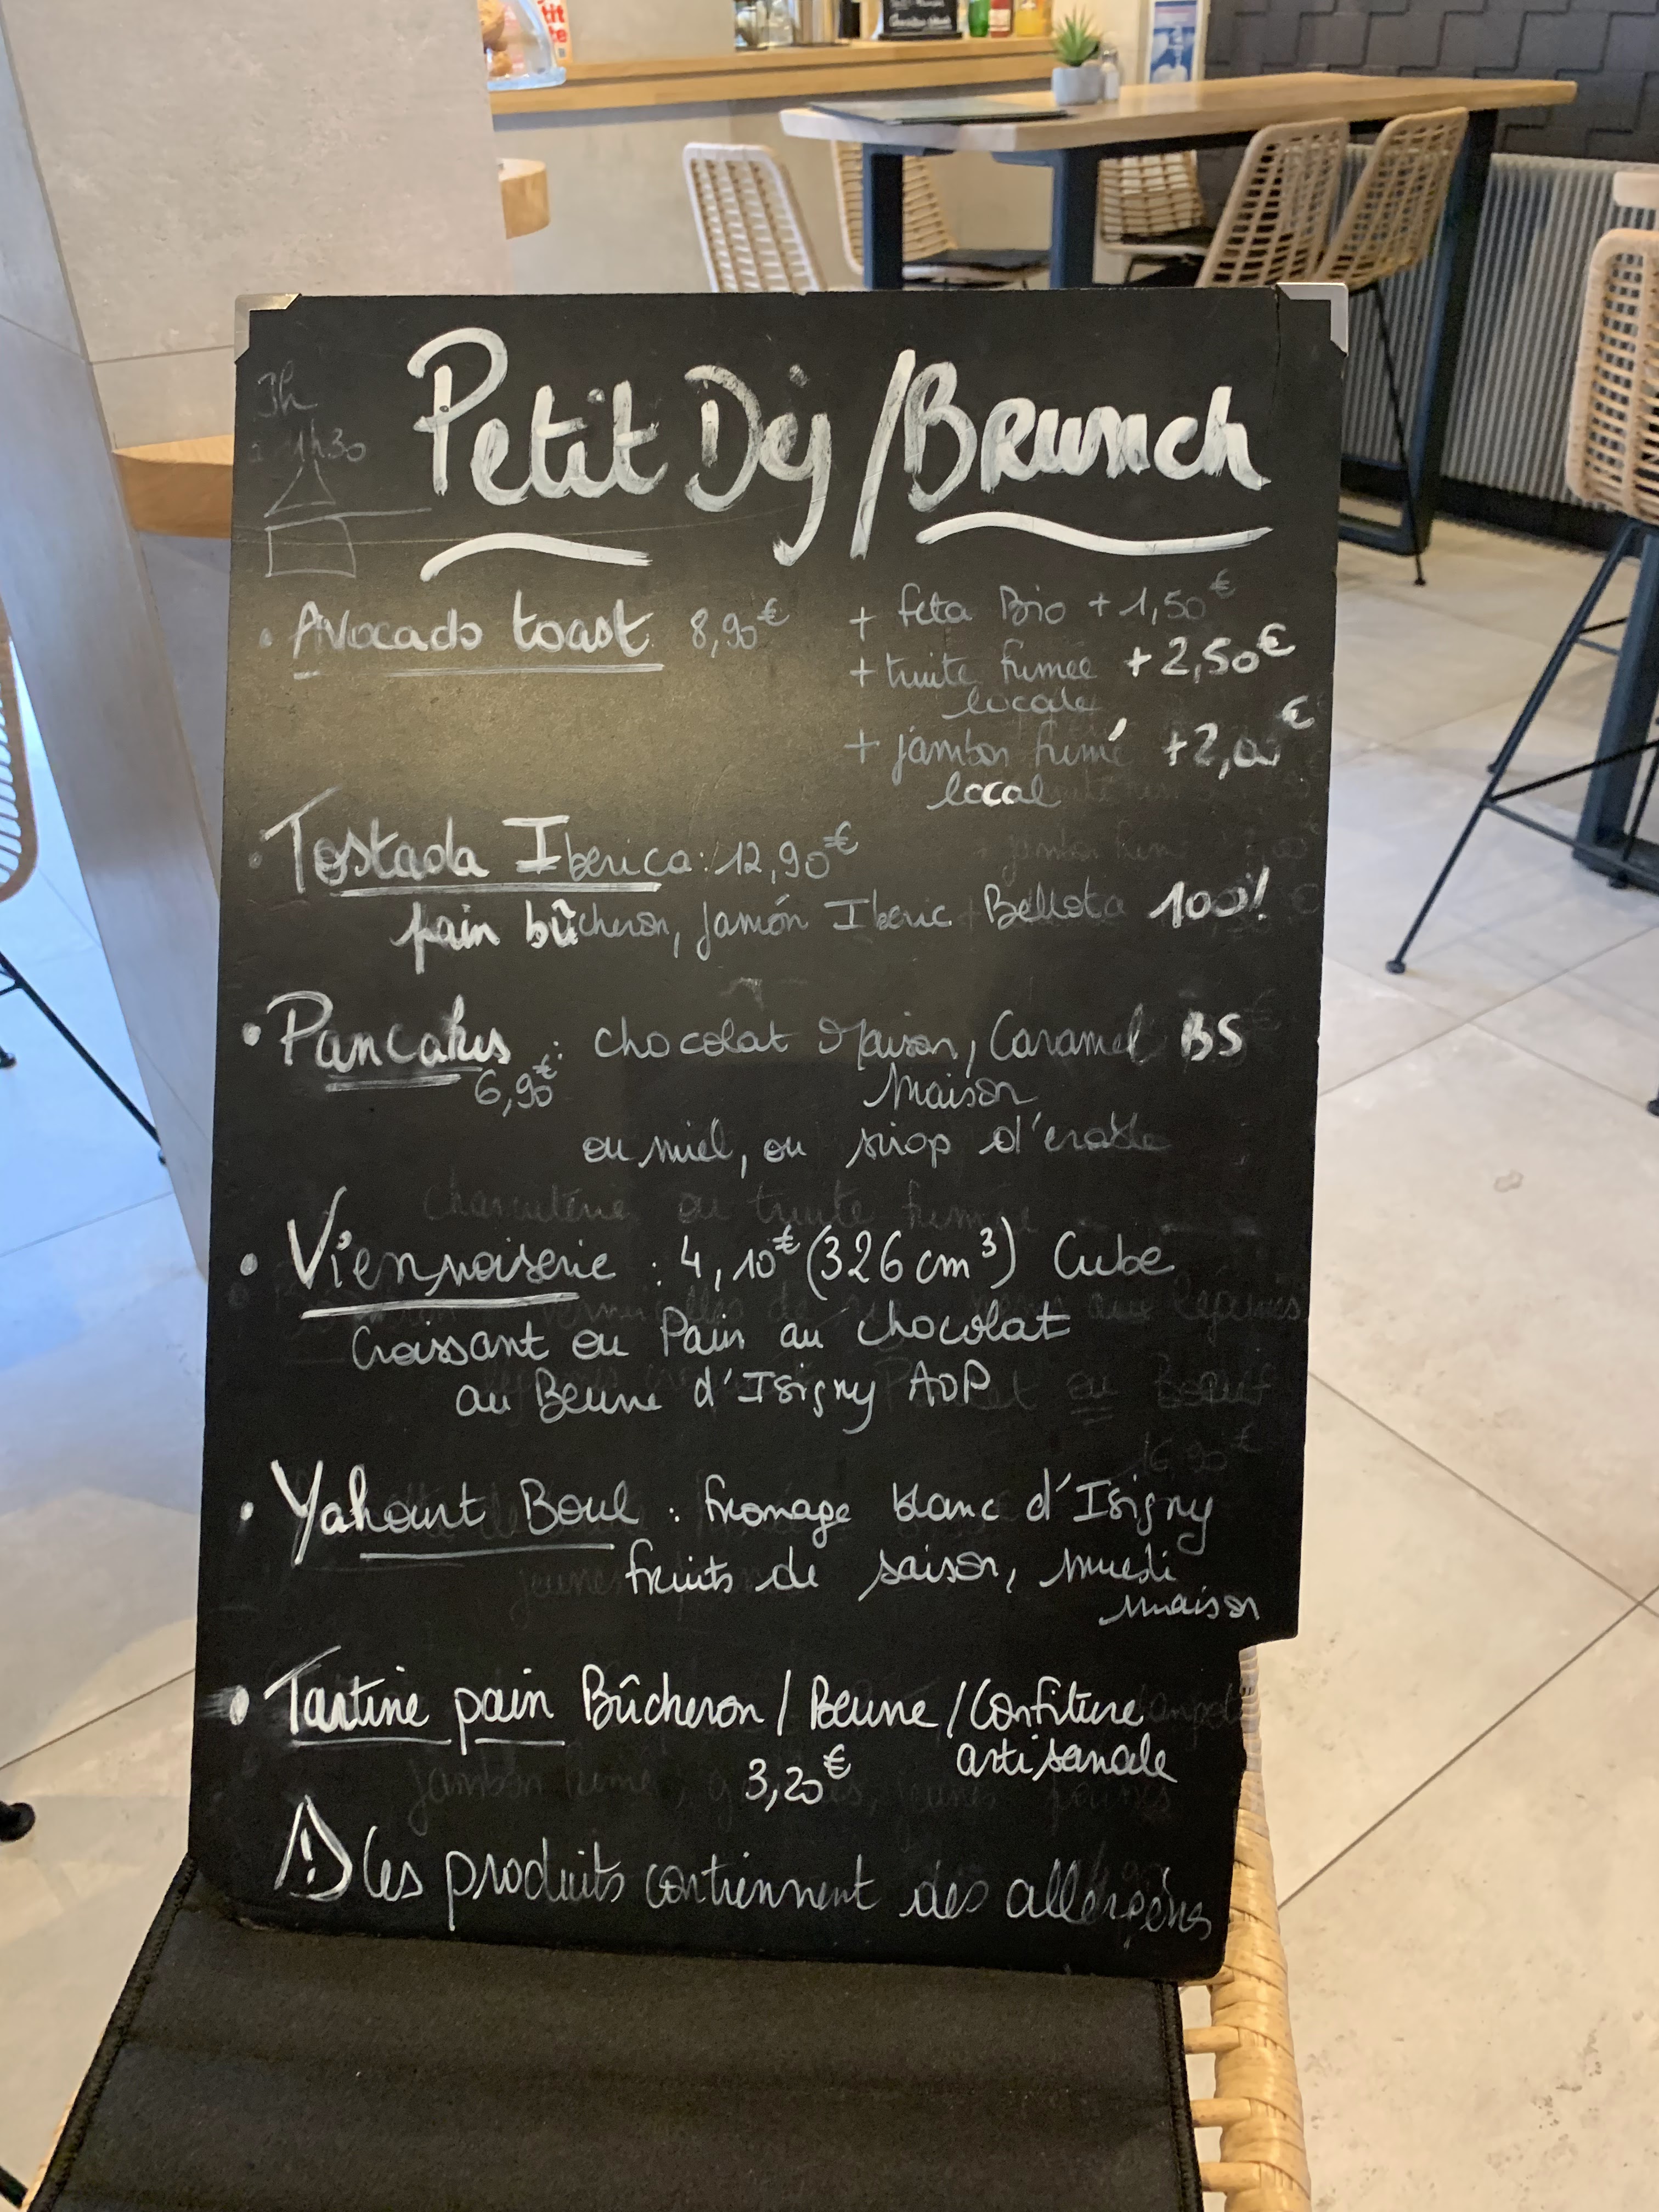 Petit Dej / Brunch
1h30
• Avocado toast 8,90€ + feta Bio + 1,50€
+ truite fumée + 2,50€
locale
+ jambon fumé + 2,00€
local
• Tostada Iberica : 12,90€
pain bûcheron, jamón Iberic Bellota 100%
• Pancakes : chocolat Maison, Caramel BS
6,90€ Maison
ou miel, ou sirop d'erable
charcuterie ou truite fumée
• Viennoiserie : 4,10€ (326 cm³) Cube
Croissant ou Pain au chocolat
au Beurre d'Isigny AOP
ou Boeuf
16,90€
• Yahourt Boul : fromage blanc d'Isigny
fruits de saison, muesli
maison
• Tartine pain Bûcheron / Beurre / Confiture
artisanale
3,20€
jambon fumé
⚠ Ces produits contiennent des allergèns